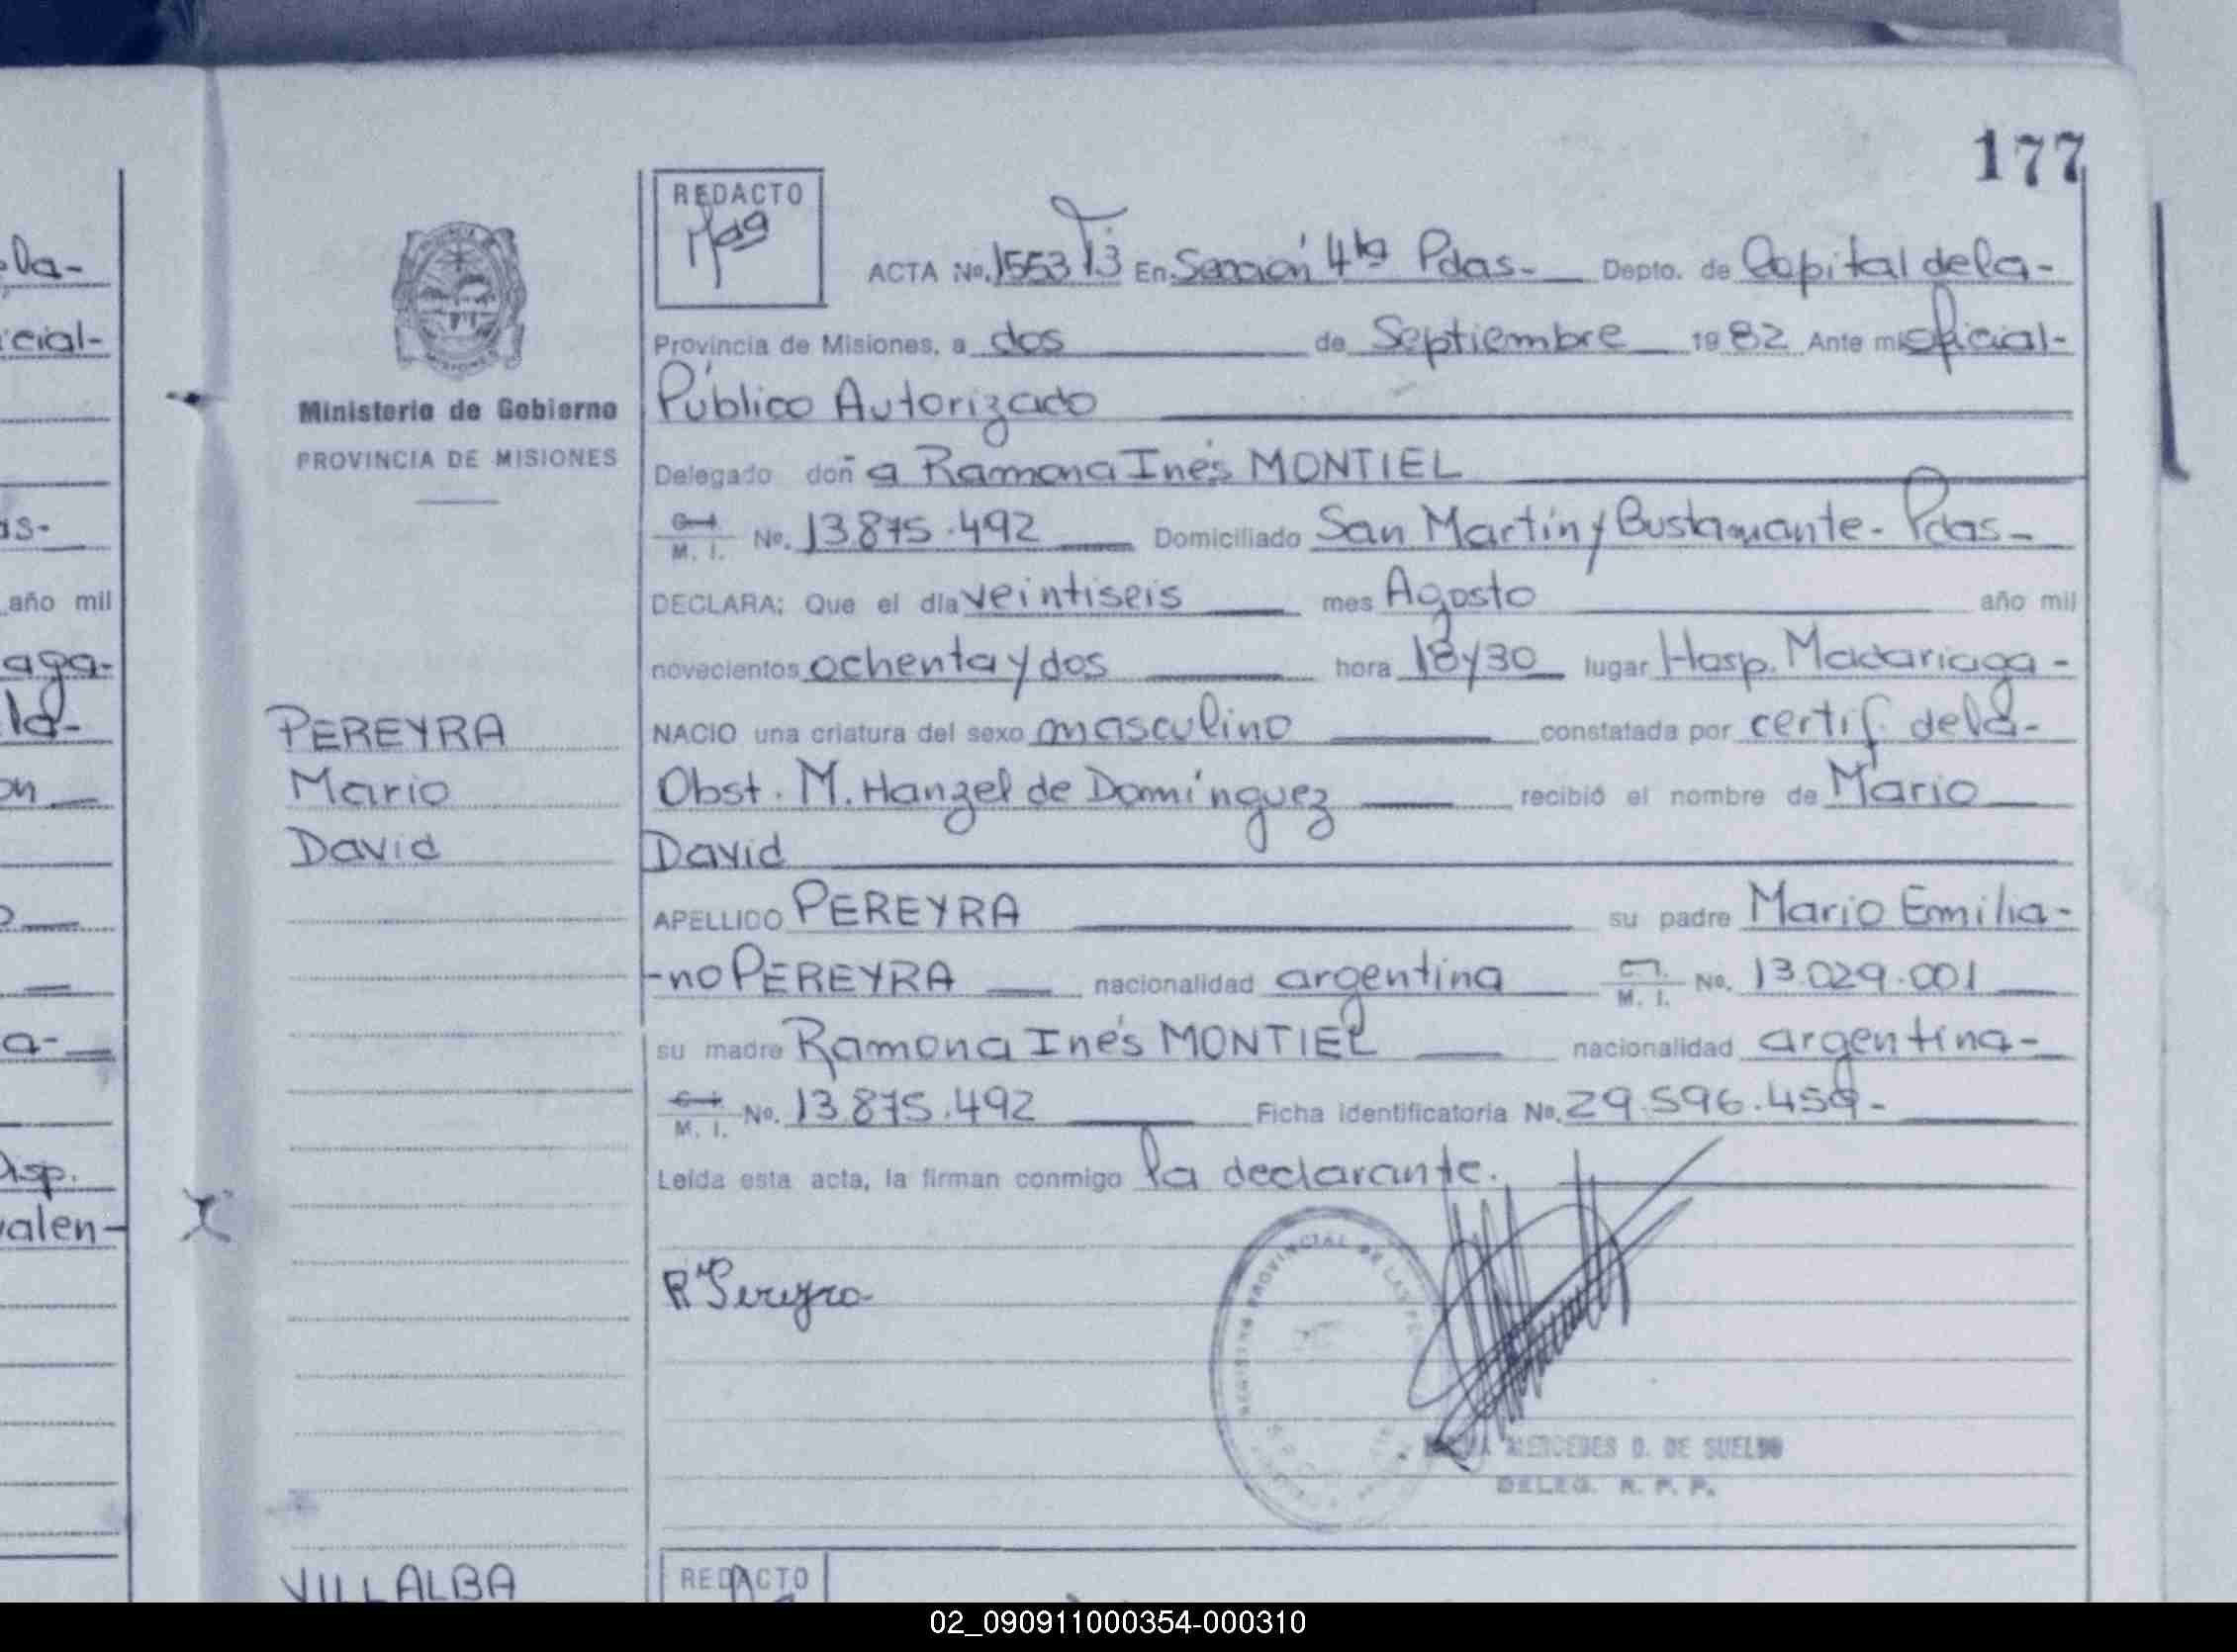 177
REDACTO
ACTA No. 1553 T3 En Sección 4ta Pdas- Depto. de Capital dela-
Provincia de Misiones, a dos de Septiembre 1982 Ante mi oficial-
Público Autorizado
Delegado doña Ramona Inés MONTIEL
M. I. No. 13.875.492 Domiciliado San Martín y Bustamante- Pdas-
DECLARA; Que el día veintiseis mes Agosto año mil
novecientos ochenta y dos hora 18y30 lugar Hosp. Madariaga-
NACIO una criatura del sexo masculino constatada por certif. dela-
Obst. M. Hanzel de Domínguez recibió el nombre de Mario
David
APELLIDO PEREYRA su padre Mario Emilia-
-no PEREYRA nacionalidad argentina C.I. M. I. No. 13.029.001
su madre Ramona Inés MONTIEL nacionalidad argentina-
M. I. No. 13.875.492 Ficha identificatoria No. 29.596.459-
Leída esta acta, la firman conmigo la declarante.
R Pereyra
REGISTRO PROVINCIAL DE LAS
MERCEDES D. DE SUELDO
DELEG. R. P. P.
REDACTO
Ministerio de Gobierno
PROVINCIA DE MISIONES
PEREYRA
Mario
David
VILLALBA
cial-
as-
año mil
aga-
la-
on
a-
Disp.
valen-
02_090911000354-000310